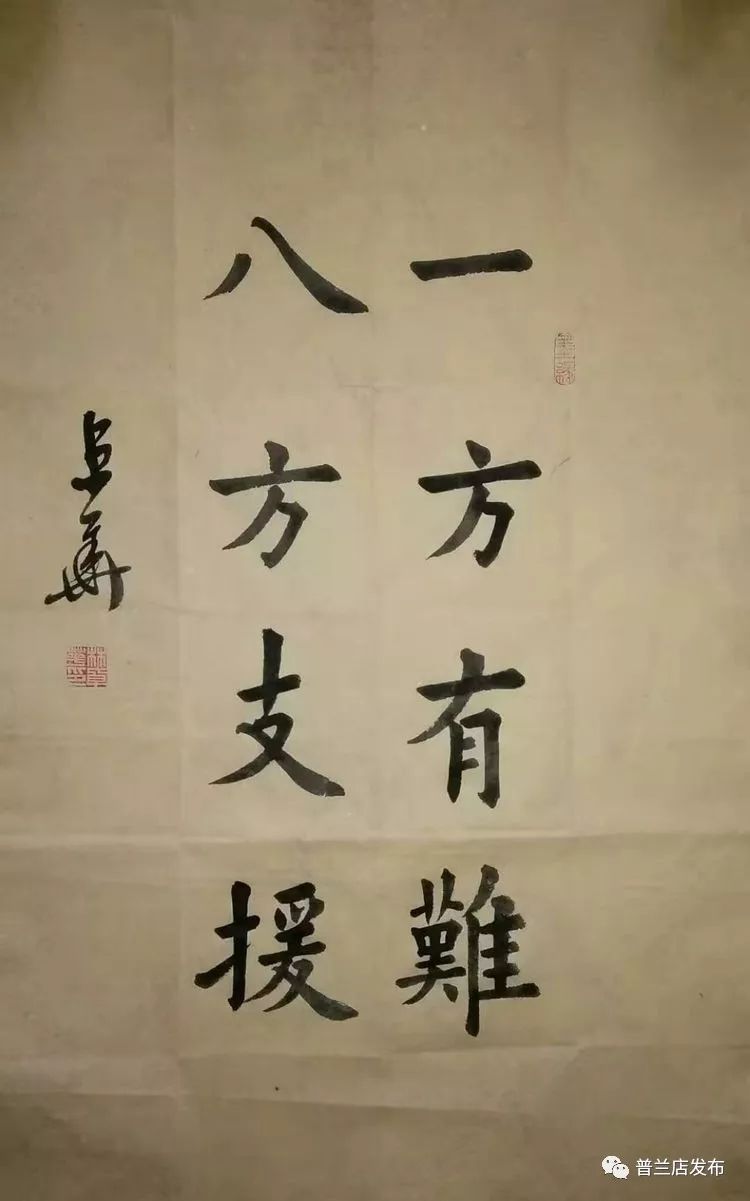 一方有難
八方支援
卓華
普兰店发布